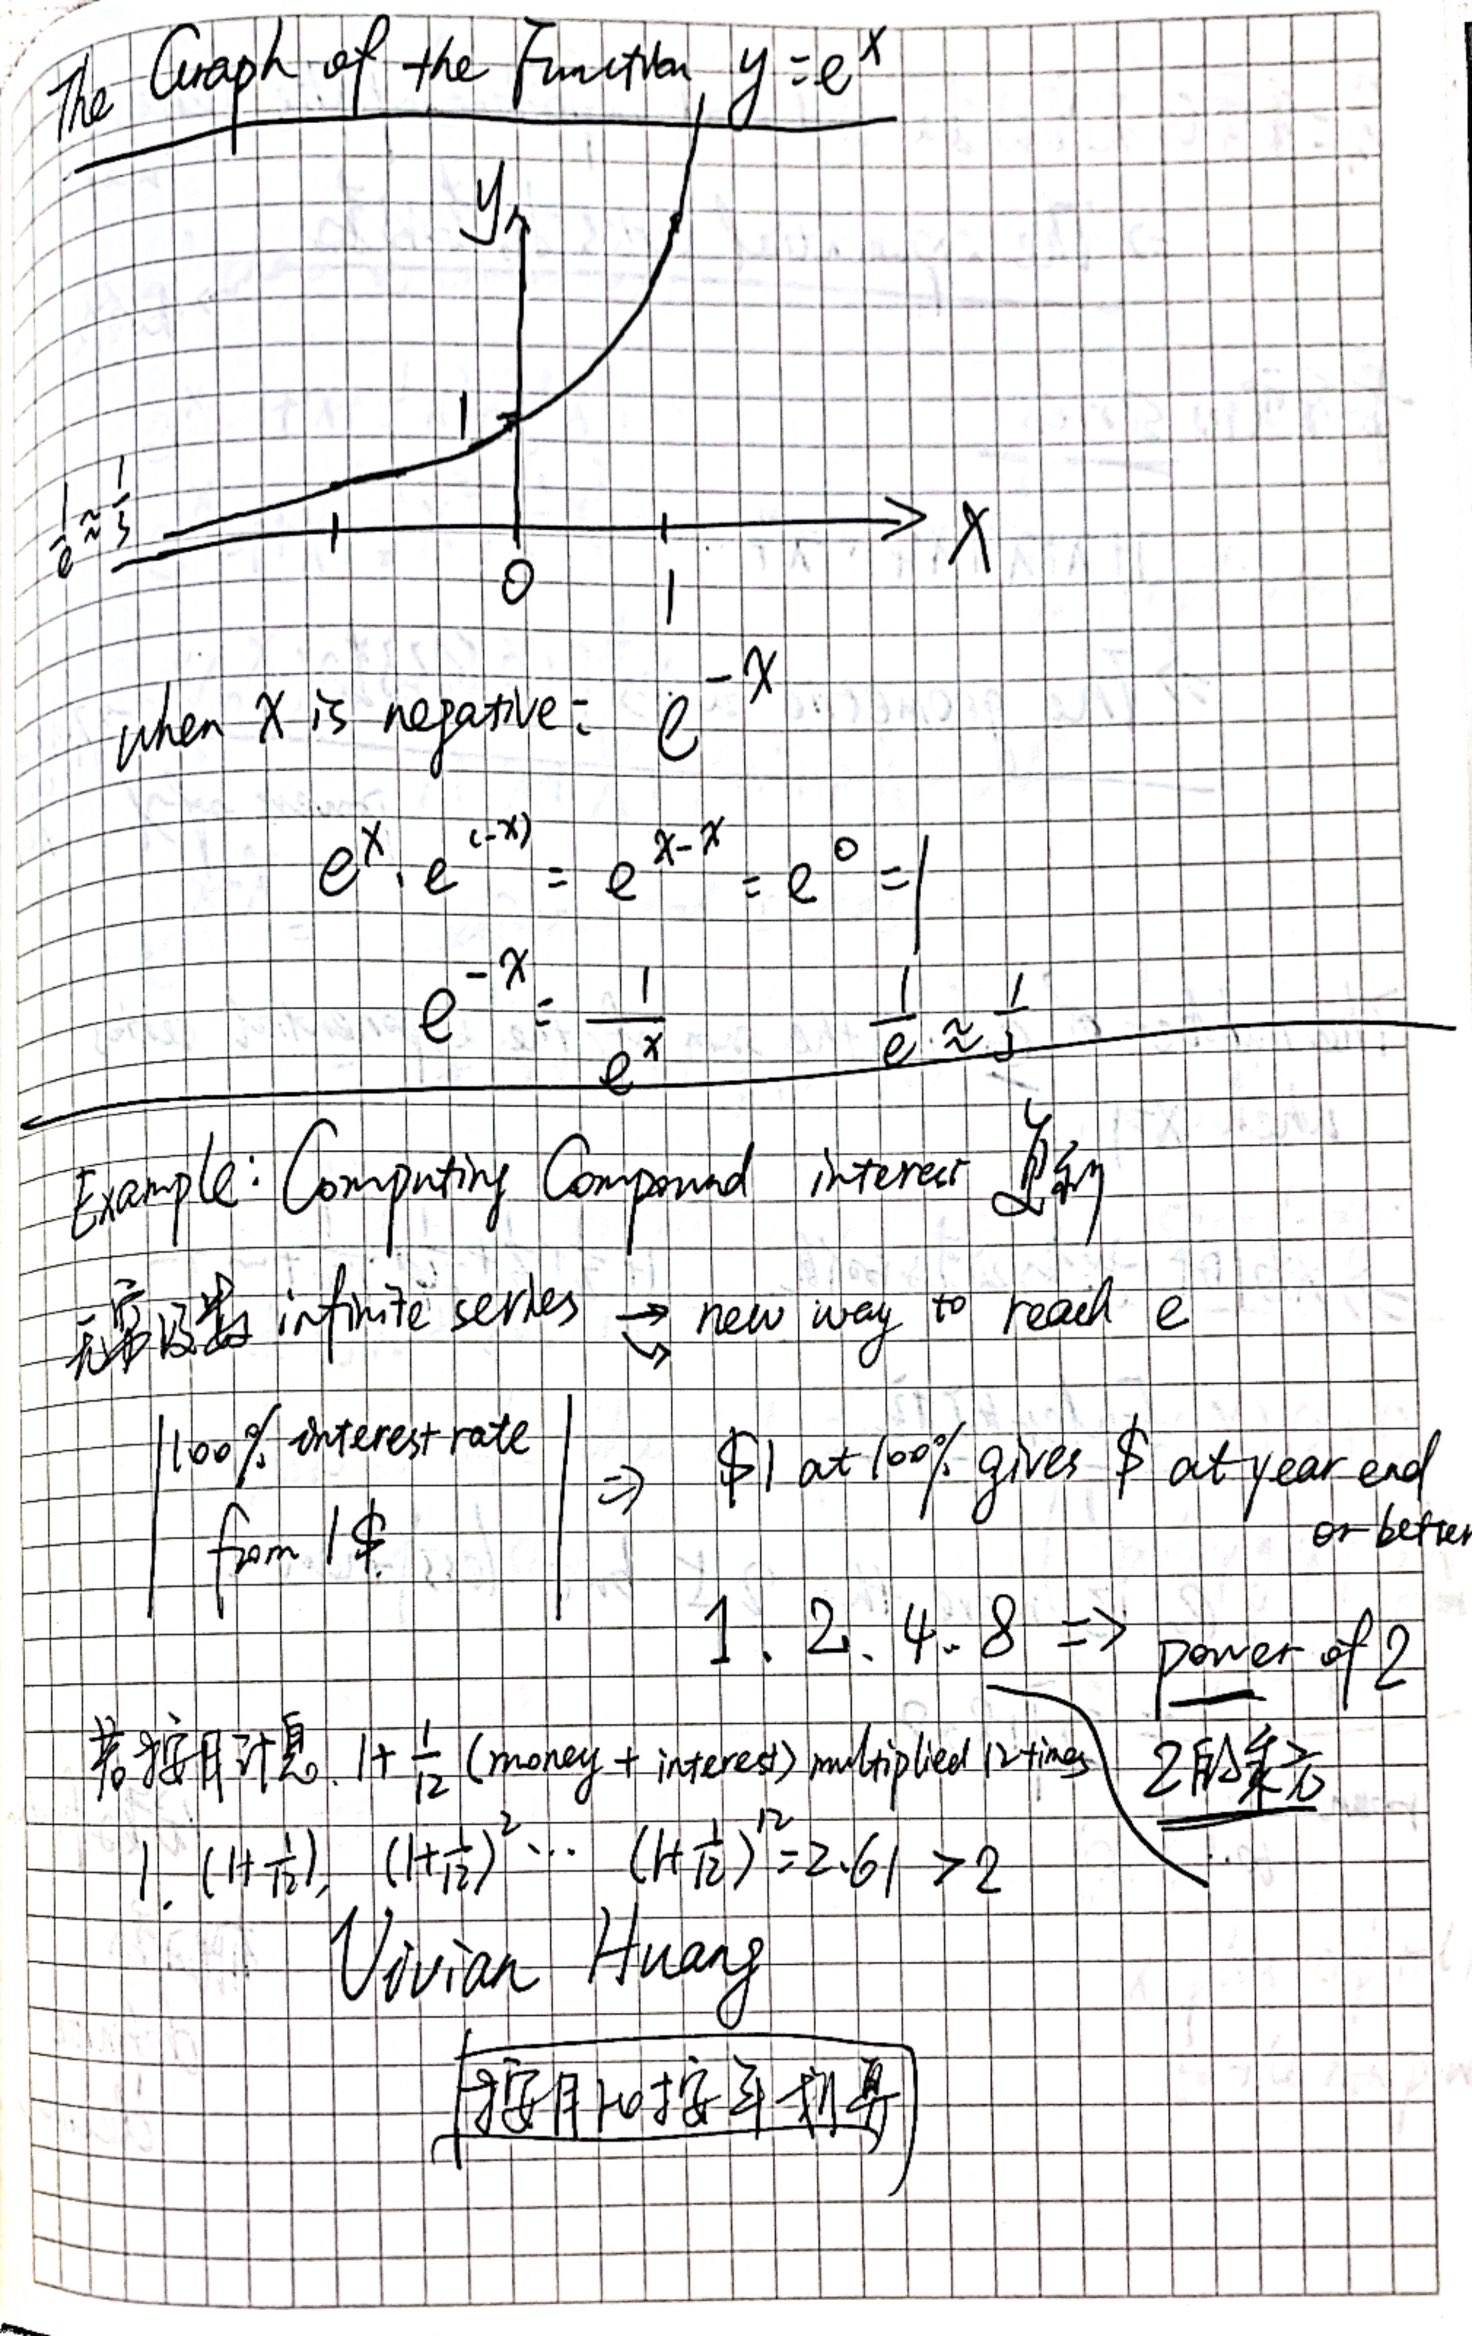 The Graph of the Function y=e^x
y
1
1/e ≈ 1/3
X
0
1
when x is negative: e^-x
e^x · e^(-x) = e^x-x = e^0 = 1
e^-x = 1/e^x    1/e ≈ 1/3
Example: Computing Compound interest 复利
无穷级数 infinite series → new way to reach e
100% interest rate
from 1$
⇒ $1 at 100% gives $ at year end
or better
1. 2. 4. 8 => power of 2
2的乘方
若按月计息. 1+1/12 (money + interest) multiplied 12 times
1. (1+1/12), (1+1/12)^2 ... (1+1/12)^12=2.61 >2
Vivian Huang
按月比按年划算